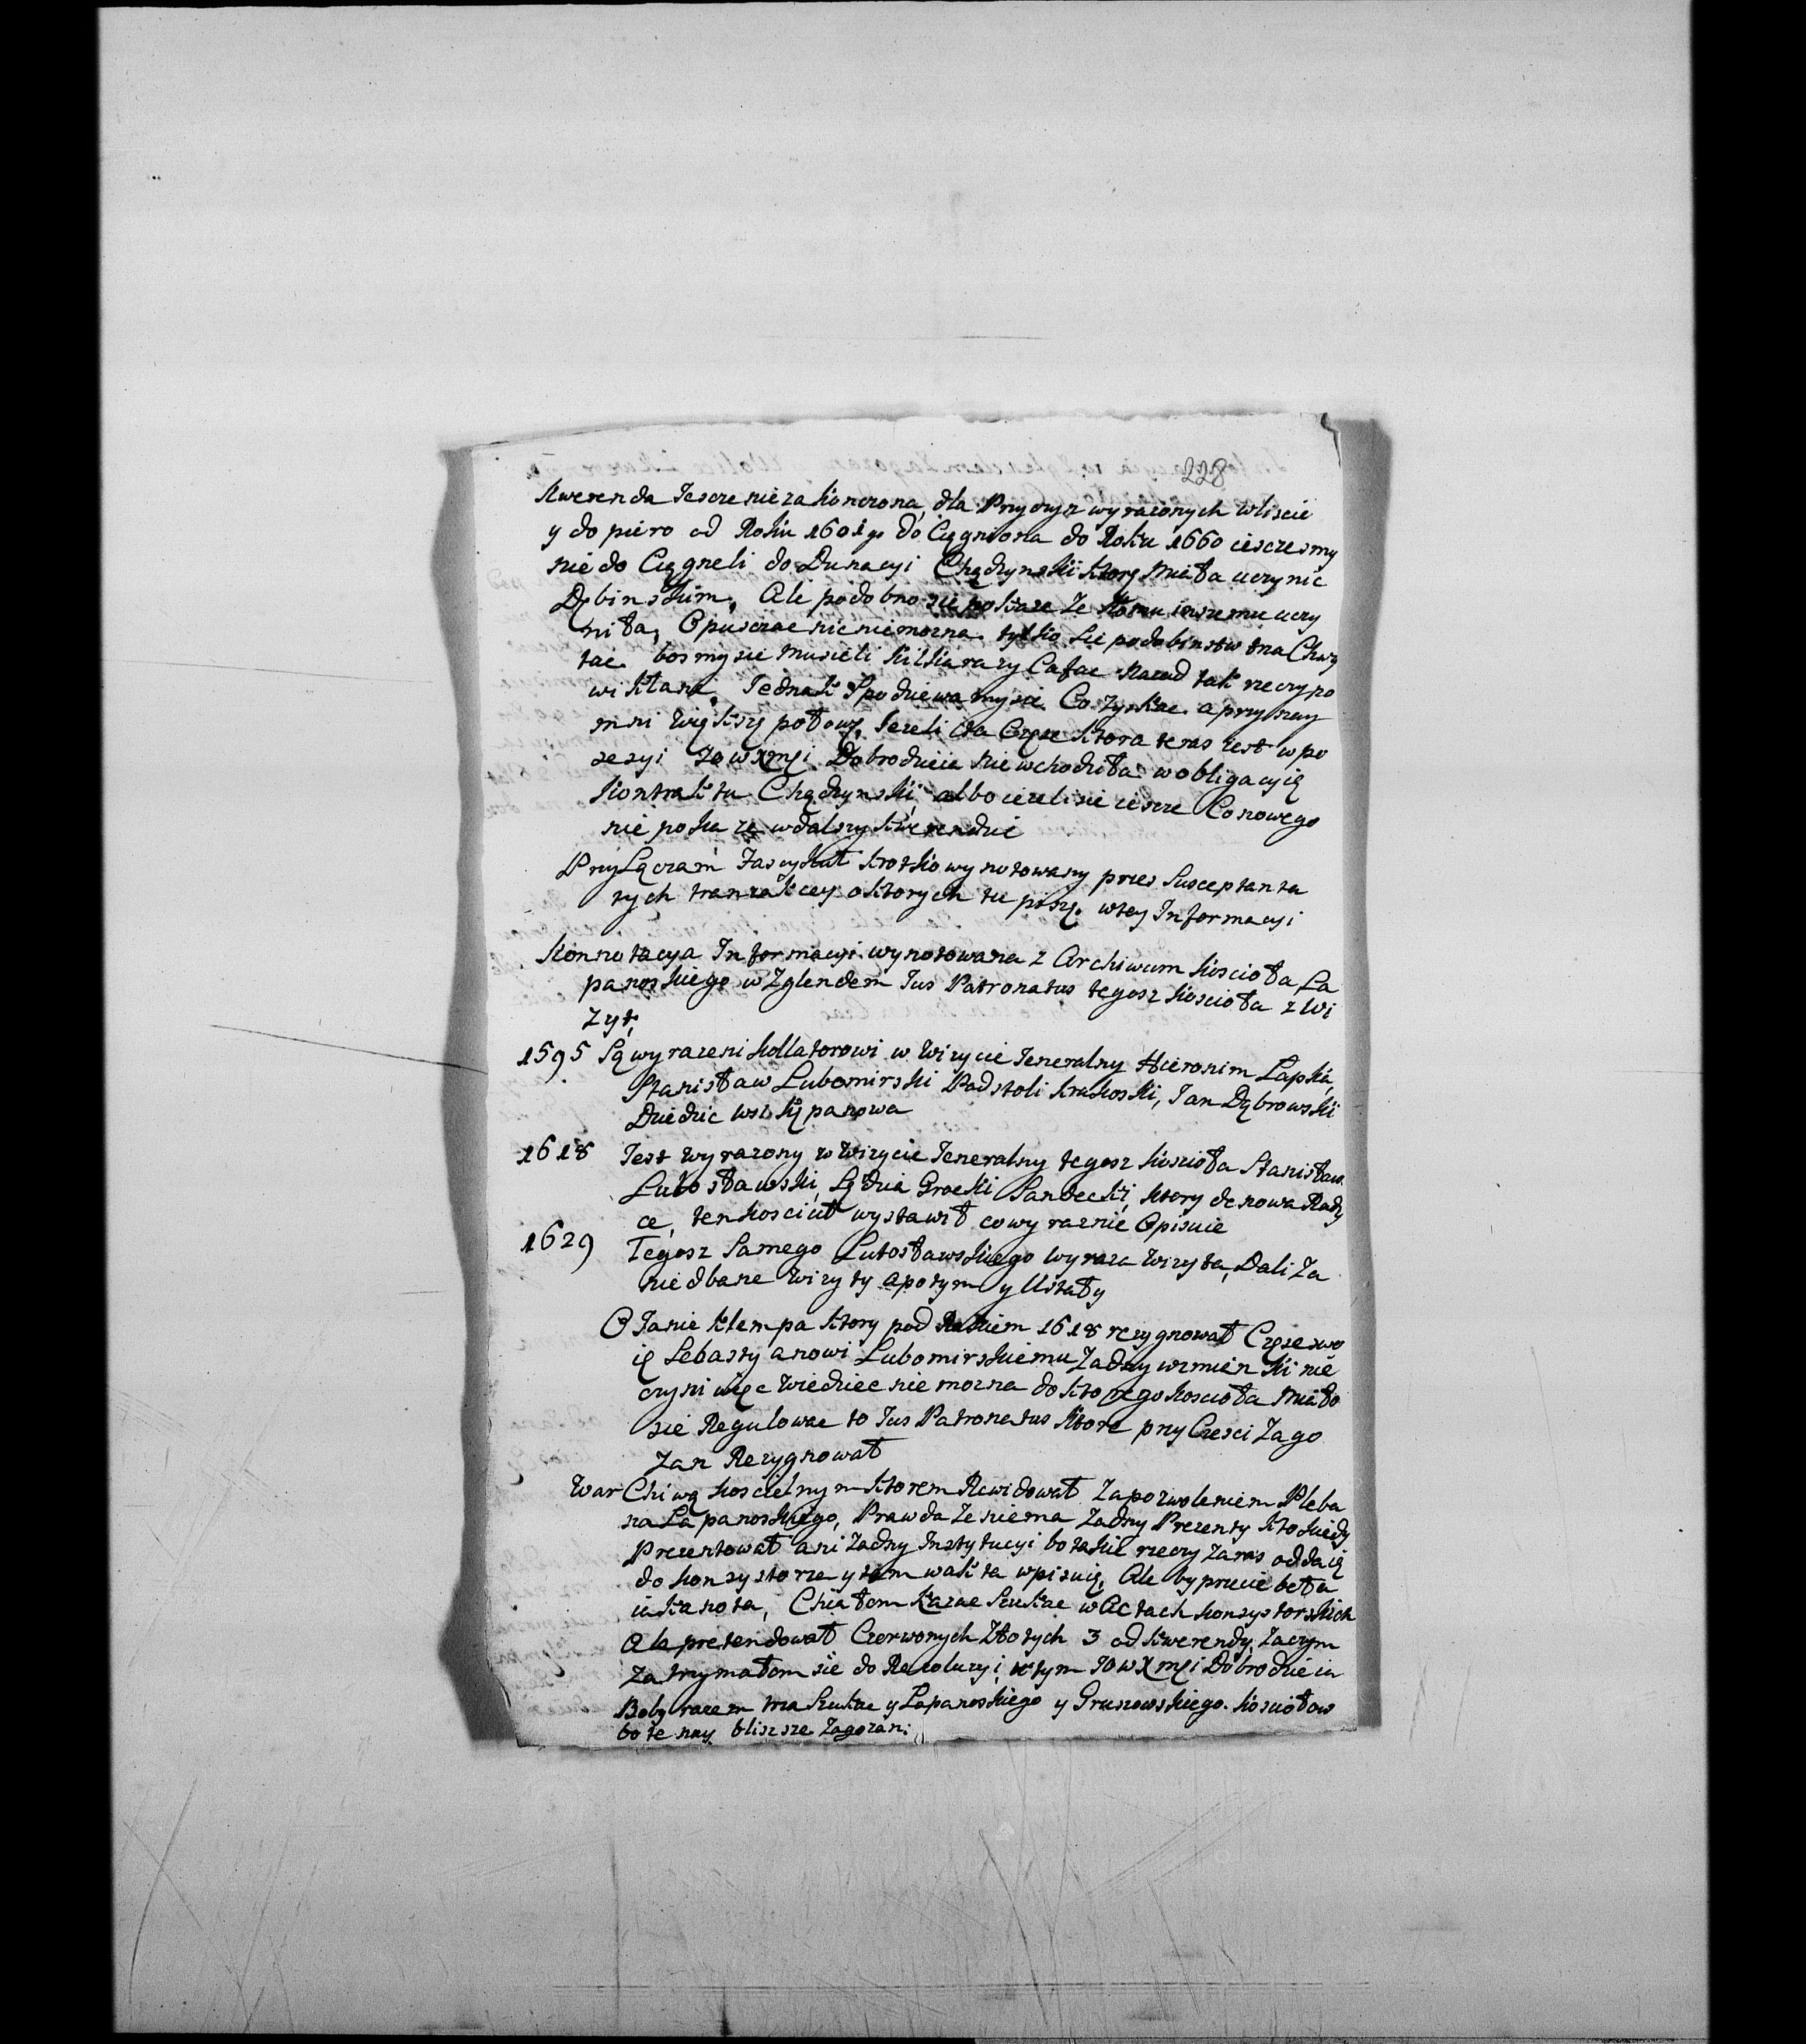 228
Kwerenda Jescze nie za Konczona, dla Przyczyn wyrazonych wliscie
y do piero od Roku 1601 go do Ciągniona do Roku 1660 iesczesmy
nie do Ciągneli do Dunacyi Chądzynskii Ktorą Miała uczynic
Dębinskim, Ale podobno sie pokaze Ze Komu inszemu uczy
niła, Opusczac nic niemozna tylko sie podobinstw tna Chwy
tac bosmy sie Musieli kilka razy Cafac Nazad tak rzeczy po
wikłane, Jednak Spodziewamy sie Co zyskac a przynay
mni Większą połowę, Jezeli ta Częsc Ktora teras iest w po
sesyi JoWXmsi Dobrodzieia nie wchodziła w obligacyią
Kontraktu Chądzynskii, albo iezeli sie iescze Co nowego
nie pokaze wdalszy Kwerendzie
PrzyLączam Fascykuł krotko wynotowany przes Susceptanta
tych tranzakcey o Ktorych tu piszę wtey Informacyi
Konnotacya Informacyi wynotowana z Archiwum Koscioła La
panoskiego wZglendem Jus Patronatus tegosz Koscioła z Wi
Zyt,
1595 Są wyrazeni Kollatorowi w Wizycie Jeneralny Hieronim Lapka,
Stanisław Lubomirski Podstoli Krakoski, Jan Dąbrowski
Dziedzic wsi Łępanowa
1618 Jest wyrazony w Wizycie Jeneralny tegosz Koscioła Stanisław
Lutosławski Sędzia Grocki Sandecki, Ktory de nowa Rady
ce, ten kosciuł wystawił co wyraznie Opisuie
1629 Tegosz Samego Lutosławskiego wyraza Wizyta, Dali Za
niedbane Wizyty a potym y Ustały
O Janie Klempa Ktory pod Rokiem 1618 rezygnował Częsc swo
ię Sebastyanowi Lubomirskiemu Zadny wzmienki nie
czyni więc Wiedziec nie mozna do Ktorego Koscioła Miało
sie Regulowac to Jus Patronatus Ktore przy Czesci Zago
zan Rezygnował
War Chiwą koscielnym Ktorem Rewidował Za pozwoleniem Pleba
na Lapanoskiego, Prawda Ze niema Zadny Prezenty Kto kiedy
Prezentował ani Zadny Instytucyi bo takie rzeczy Zaras oddaią
do Konsystorza y tam wakta wpisuią, Ale by przecie beła
iaka nota, Chciałem Kazac Szukac w Actach Konsystorskich
Ale pretendował Czerwonych Złotych 3 od kwerendy, Zaczym
Zatrzymałem sie do Rezolucyi, w tym JoWXmsi Dobrodzieia
Boby razem trza Szukac y Lapanoskiego y Grusowskiego Kosciołow
bo te nay blisze Zagozan: